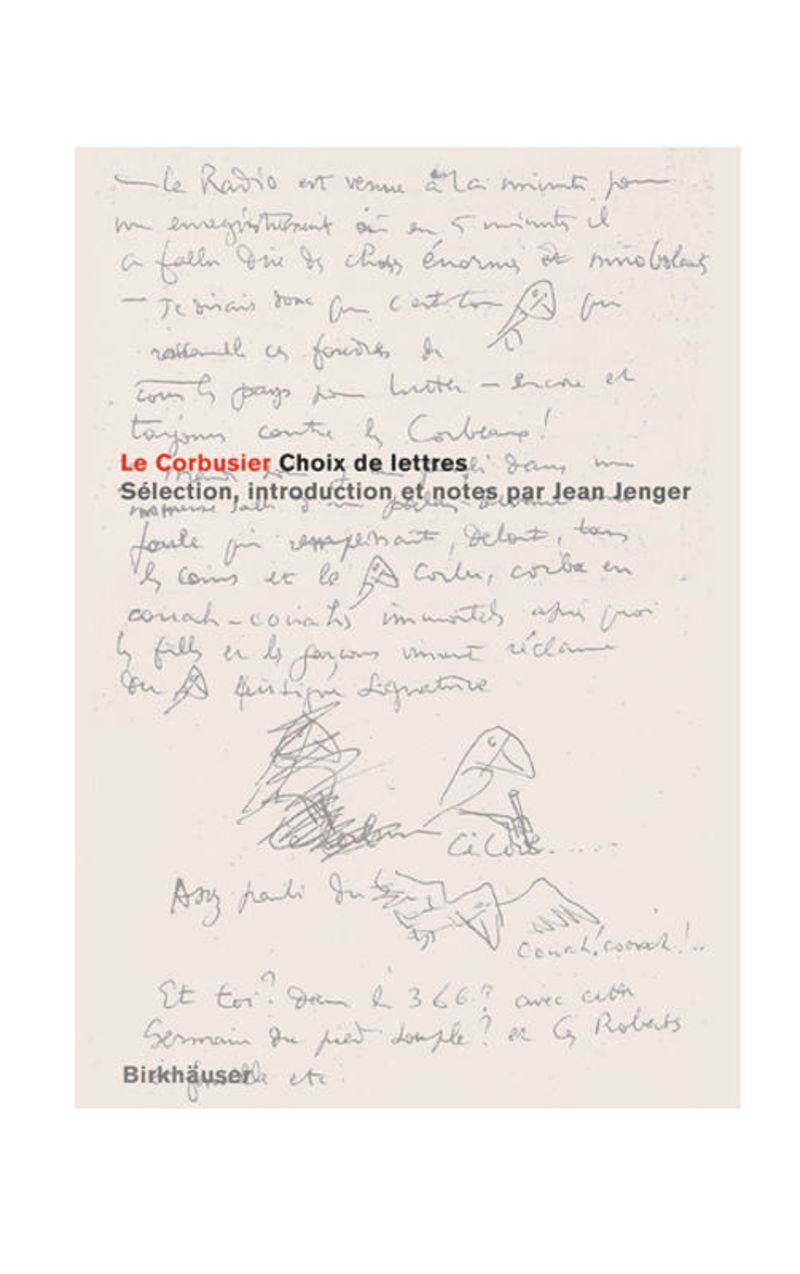 — La Radio est venue à la minute pour
un enregistrement où en 5 minutes il
a fallu dire des choses énormes et mirobolants
— Je disais donc que c'est ton qui
rassemble ces foudres de
tous les pays pour lutter – encore et
toujours contre les Corbeaux!
Le Corbusier Choix de lettres
dans un
Sélection, introduction et notes par Jean Jenger
foule qui remplissait, debout, tous
les coins et le Corbu, corba en
couah-couahs immortels après quoi
les filles et les garçons vinrent réclamer
du signature
Couah, couah!..
Et toi? dans le 366? avec
Germain du pied souple? et les Roberts
Birkhäuser
etc.